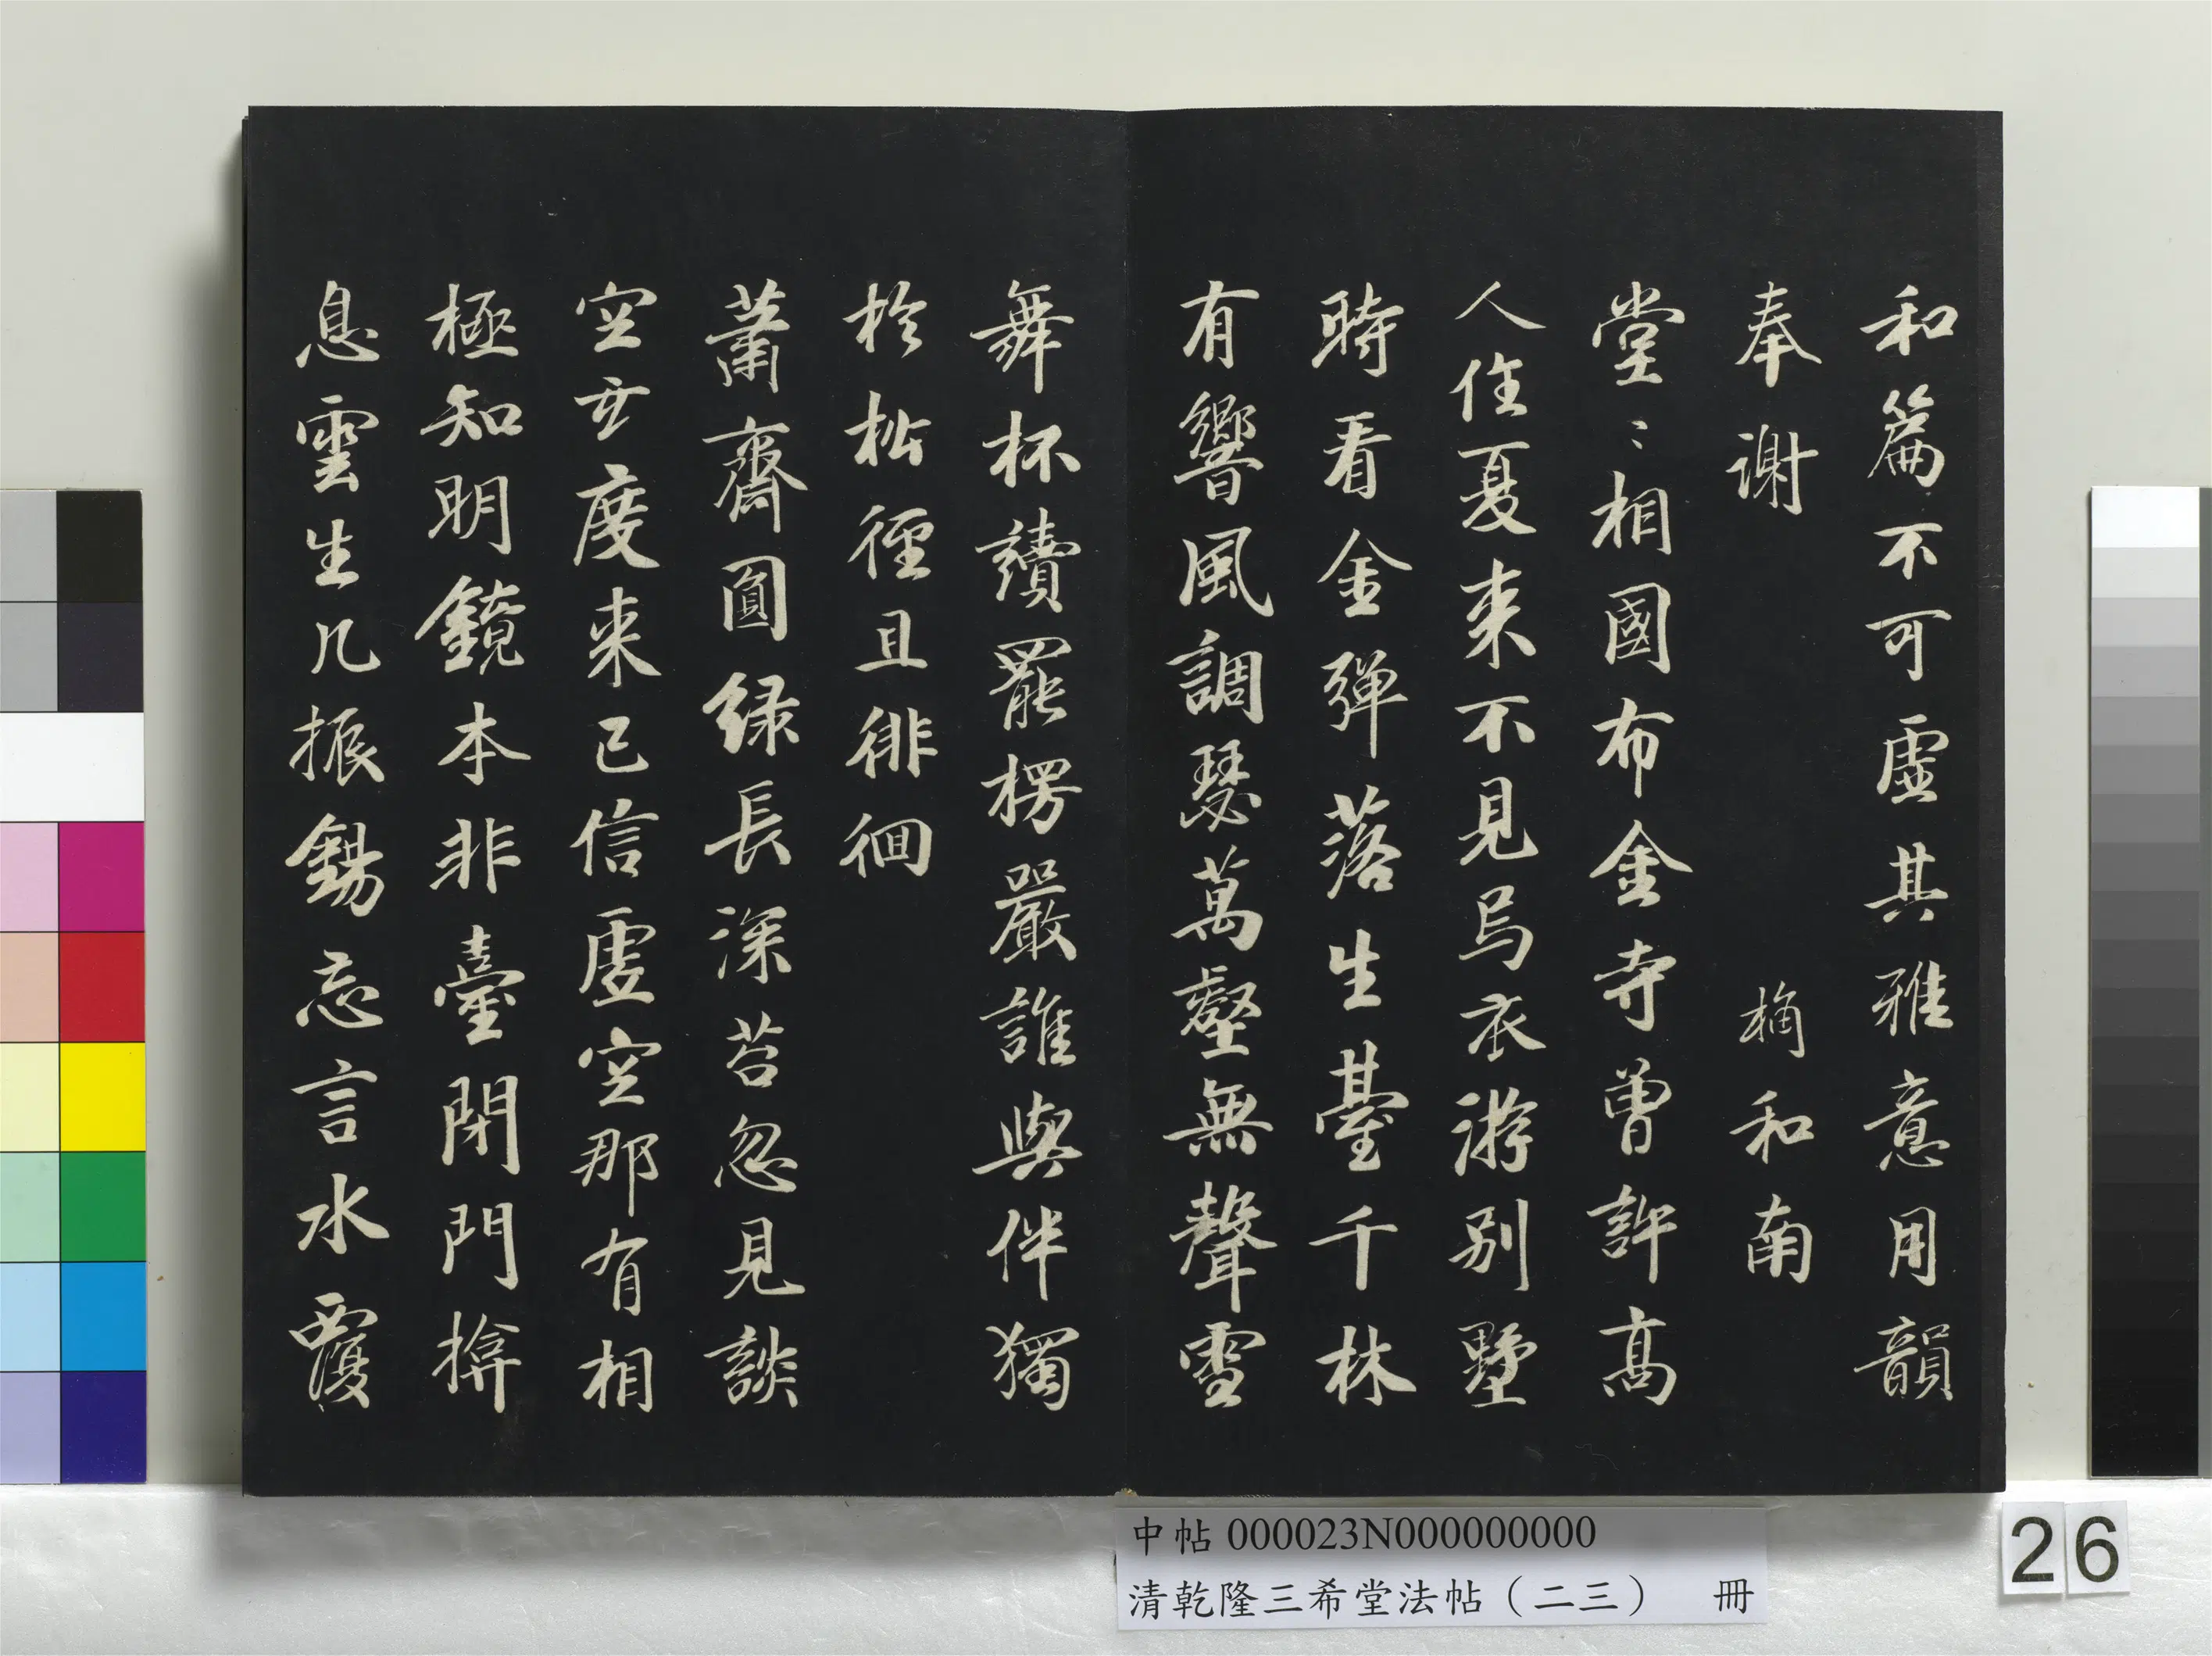 和篇不可虛其雅意用韻
奉謝　　　　　　樀和南
堂〻相國布金寺曾許高
人住夏来不見烏衣游別墅
時看金彈落生臺千林
有響風調瑟萬壑無聲雪
舞杯讀罷楞嚴誰與伴獨
於松徑且徘徊
蕭齋圓緑長深苔忽見談
空女度来已信虛空那有相
極知明鏡本非臺閑門揜
息雲生几振錫忘言水覆
中帖 000023N000000000
清乾隆三希堂法帖（二三）　冊
26